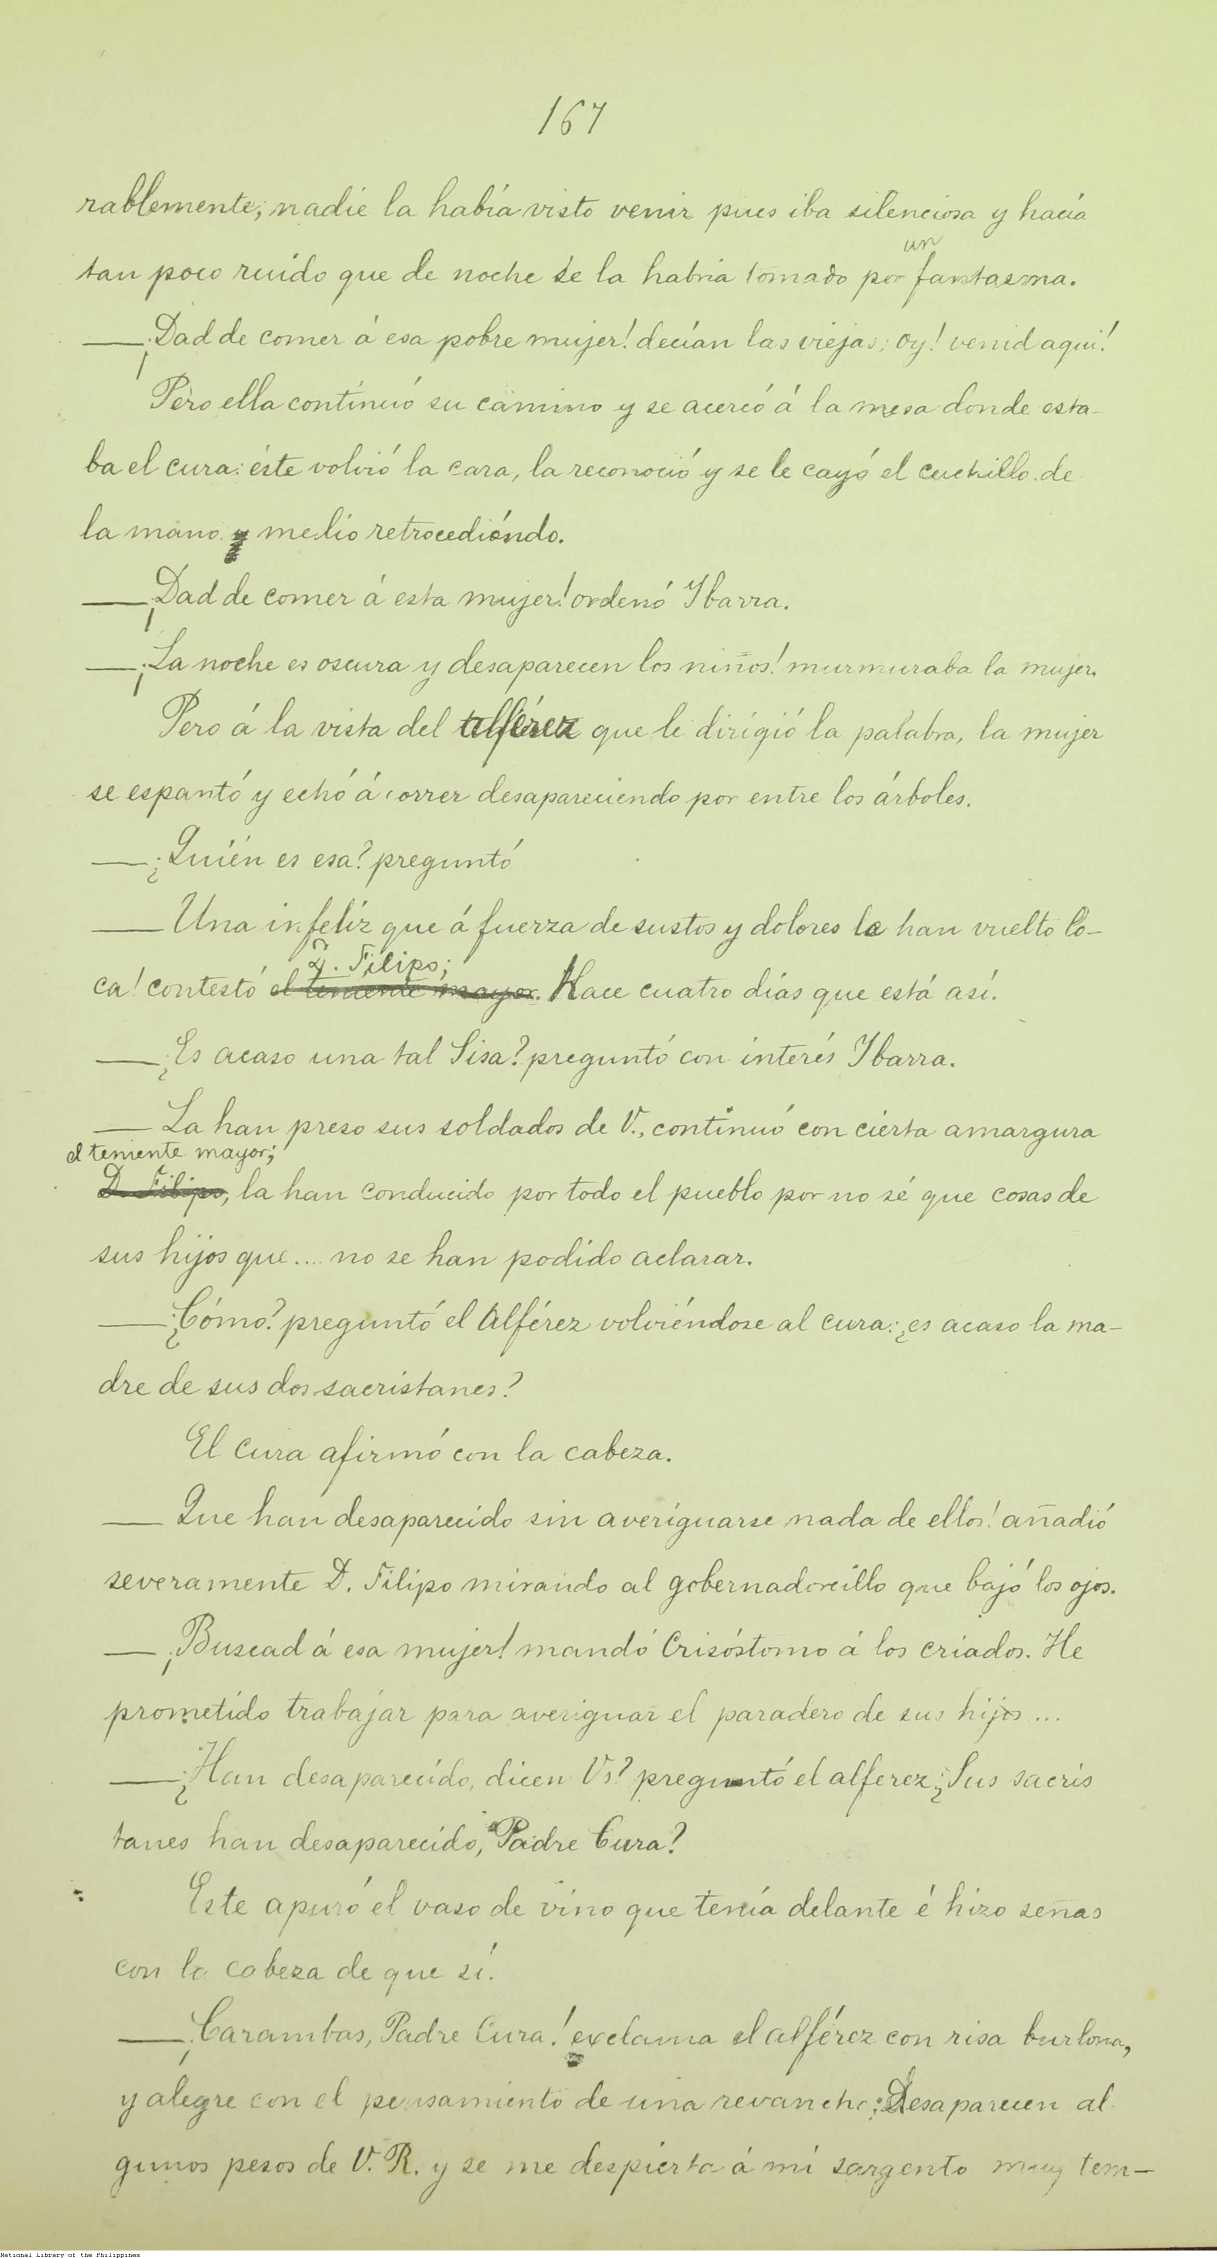 167
rablemente; nadie la había visto venir pues iba silenciosa y hacía
un
tan poco ruido que de noche se la habria tomado por fantasma.
— ¡Dad de comer á esa pobre mujer! decían las viejas; oy! venid aqui!
Pero ella continuó su camino y se acercó á la mesa donde esta-
ba el cura: éste volvió la cara, la reconoció y se le cayó el cuchillo de
la mano y medio retrocediéndo.
— ¡Dad de comer á esta mujer! ordenó Ibarra.
— ¡La noche es oscura y desaparecen los niños! murmuraba la mujer.
Pero á la vista del alférez que le dirigió la palabra, la mujer
se espantó y echó á correr desapareciendo por entre los árboles.
— ¿Quién es esa? preguntó
— Una infelíz que á fuerza de sustos y dolores la han vuelto lo-
D. Filipo;
ca! contestó el teniente mayor. Hace cuatro días que está así.
— ¿Es acaso una tal Sisa? preguntó con interés Ibarra.
— La han preso sus soldados de V., continuó con cierta amargura
el teniente mayor;
D. Filipo, la han conducido por todo el pueblo por no sé que cosas de
sus hijos que.... no se han podido aclarar.
— ¿Cómo? preguntó el Alférez volviéndose al cura: ¿es acaso la ma-
dre de sus dos sacristanes?
El cura afirmó con la cabeza.
— Que han desaparecido sin averiguarse nada de ellos! añadió
severamente D. Filipo mirando al gobernadorcillo que bajó los ojos.
— ¡Buscad á esa mujer! mandó Crisóstomo á los criados. He
prometido trabajar para averiguar el paradero de sus hijos ...
— ¿Han desaparecido, dicen Vs? preguntó el alferez; ¿Sus sacris
tanes han desaparecido, Padre Cura?
Este apuró el vaso de vino que tenía delante é hizo señas
con la cabeza de que sí.
— ¡Carambas, Padre Cura! exclama el alférez con risa burlona,
y alegre con el pensamiento de una revancha; Desaparecen al
gunos pesos de V. R. y se me despierta á mi sargento muy tem-
National Library of the Philippines